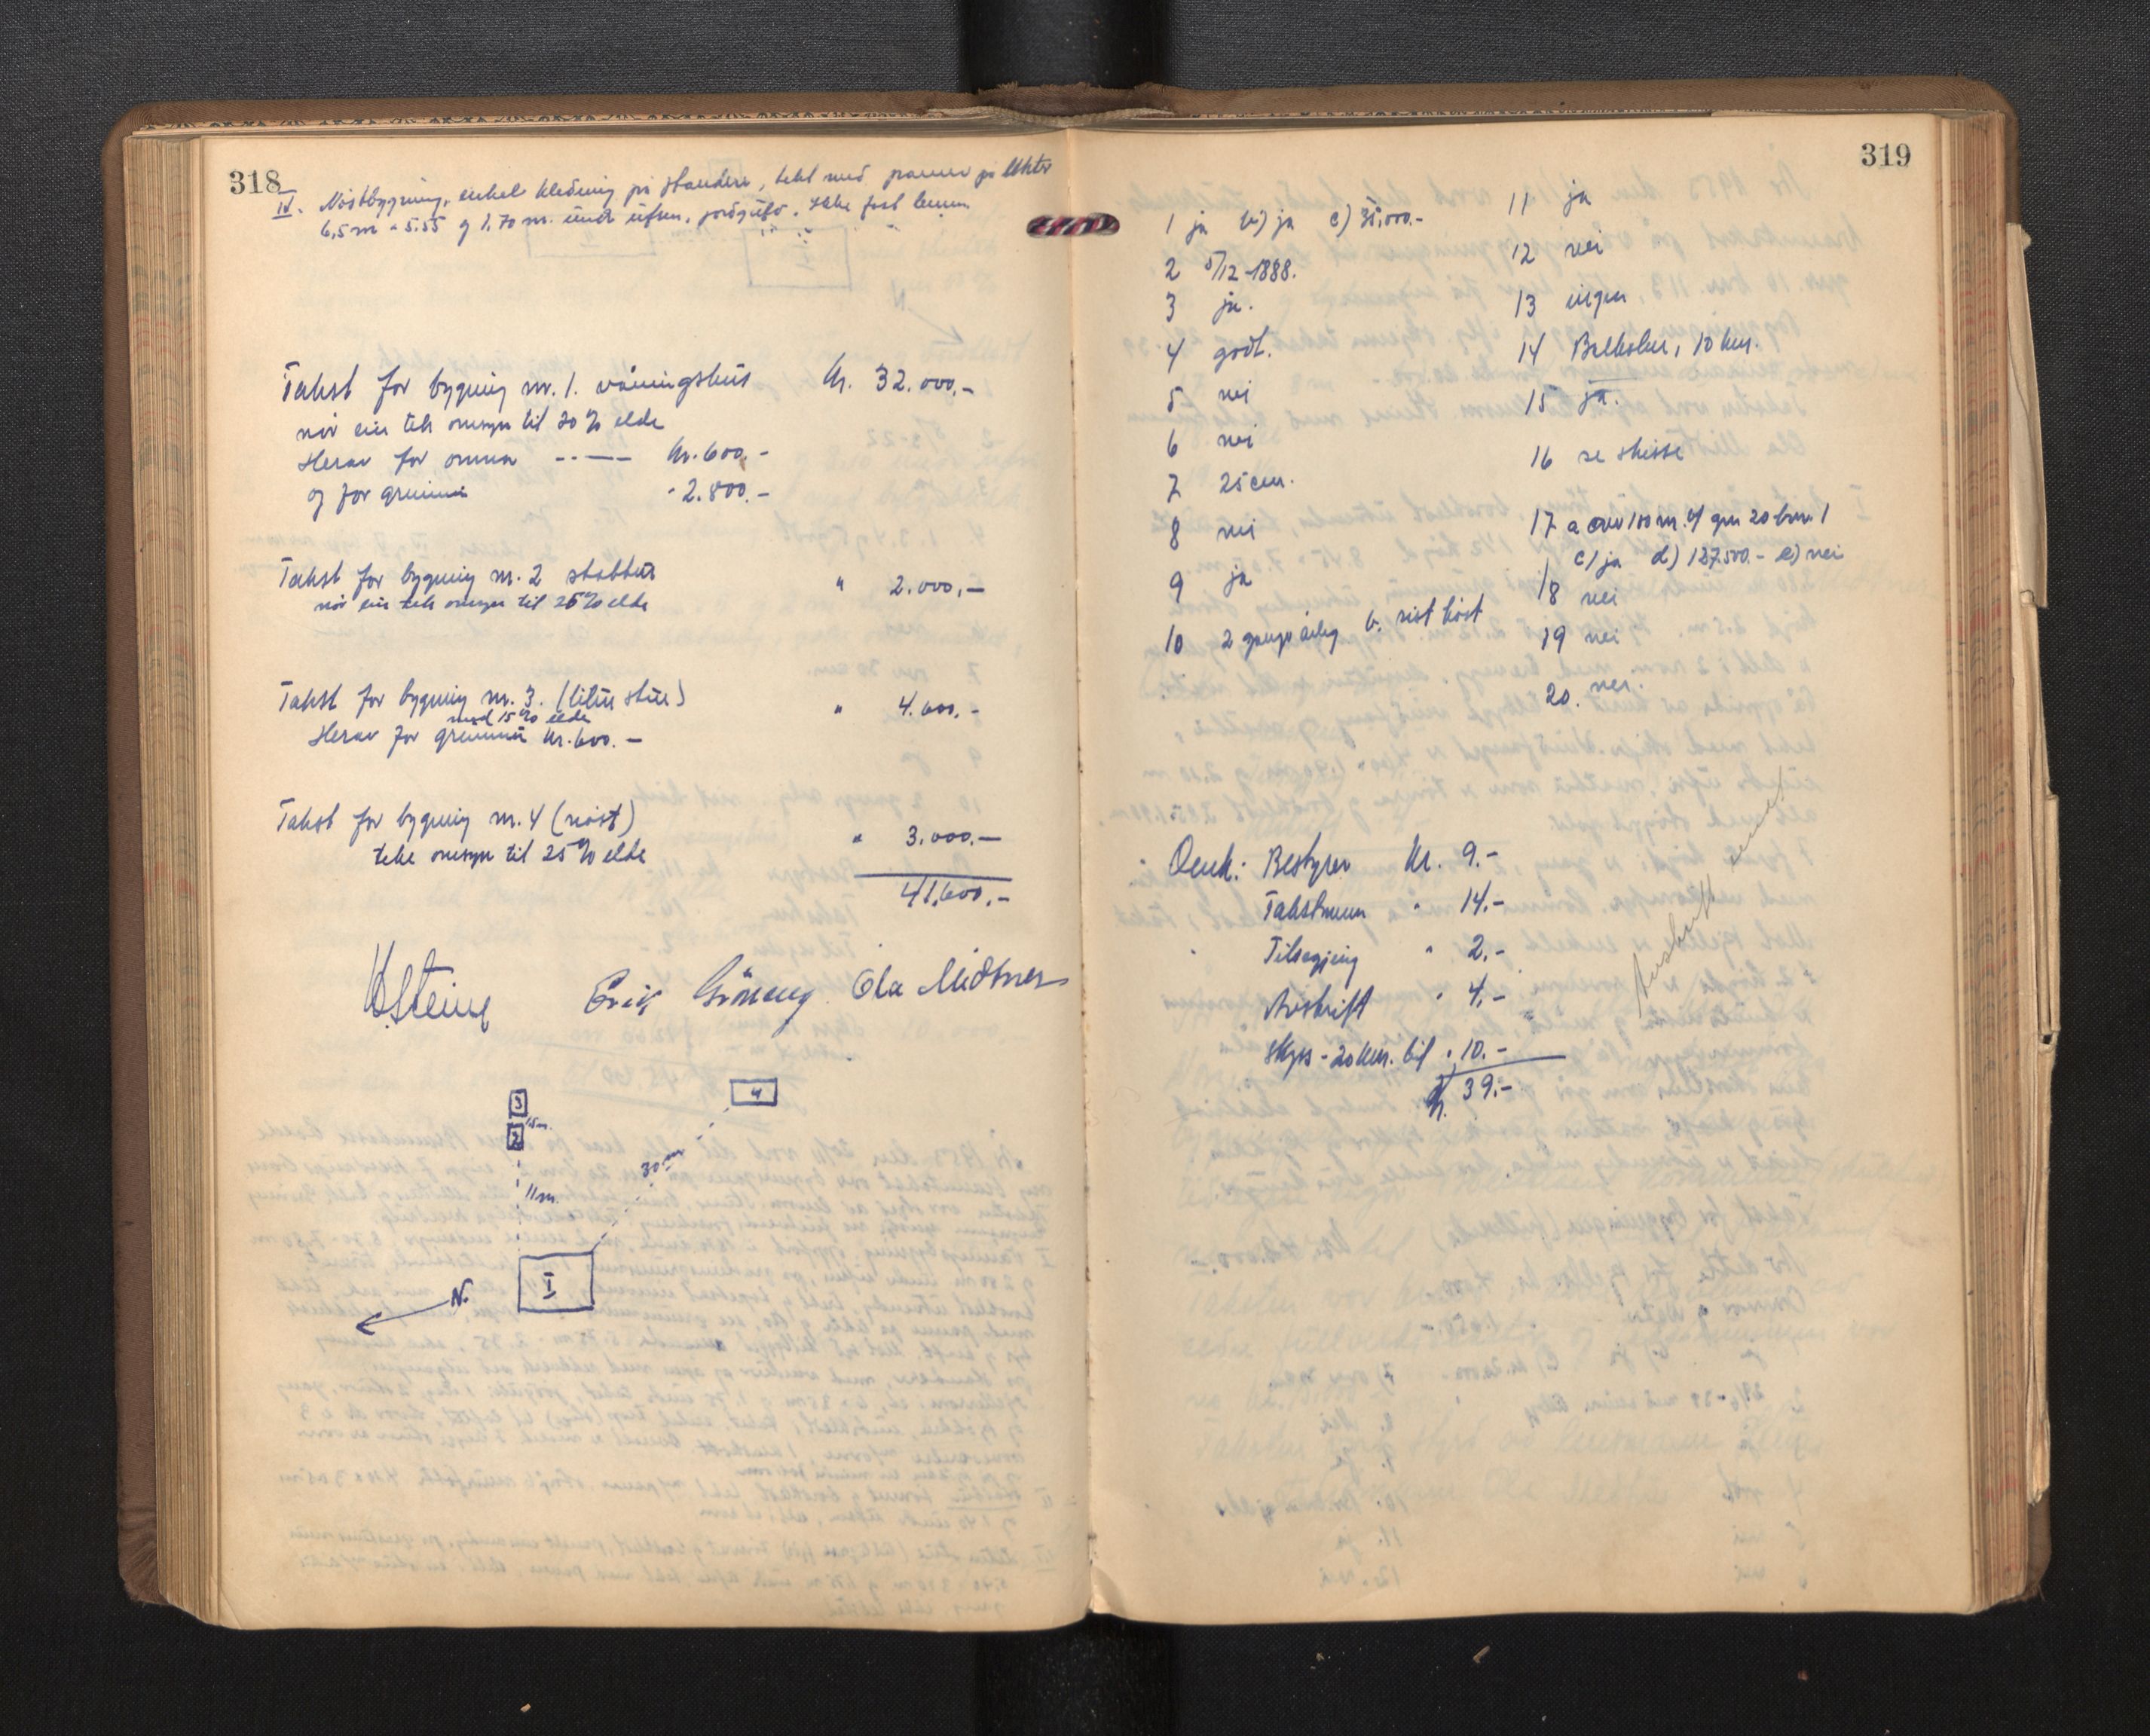 318
IV. Nøstbygning, enkel kledning på standera, tekt med panner på lekter
6,5 m × 5.55 og 1,70 m. under ufsen, jordgulv. Ikke fast lemm
Takst for bygning nr. 1. våningshus kr. 32.000,-
når ein tek omsyn til 20% elde
Herav for omnen kr. 600,-
og for grunnm " 2.800.-
Takst for bygning nr. 2 stabbur " 2.000,-
når ein tek omsyn til 25% elde
Takst for bygning nr. 3. (liti stue) " 4.600,-
med 15% elde
Herav for grunnmur kr. 600.-
Takst for bygning nr. 4 (nøst) " 3.000.-
teke omsyn til 25% elde
41.600.-
Steine Erik Ola Midtner
3
15 m.
2
4
30 m
11 m.
I
N.
319
1 ja b) ja c) 35,000.-
2 5/12-1888.
3 ja.
4 godt.
5 nei
6 nei
7 25 cm.
8 nei
9 ja
10 2 gonger årleg b. sist høst
11 ja
12 nei
13 ingen
14 Balholm, 10 km.
15 ja.
16 se skisse
17 a over 100 m. gnr 20 bnr. 1
c) ja d) 127.500.- e) nei
18 nei
19 nei
20. nei.
Omk: Bestyrer kr. 9.-
Takstmenn " 14.-
Tilsegjing " 2.-
Avskrift " 4.-
Skyss - 20 km. bil " 10.-
kr. 39.-
Avskrift sendt